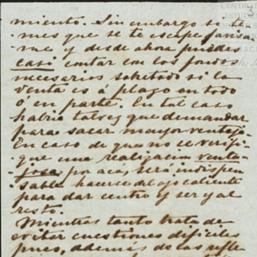 miento. Sin embargo si te-
mes que se te escape avisa-
me y desde ahora puedes
casi contar con los fondos
necesarios sobretodo si la
venta es á plazo en todo
ó en parte. En tal caso
habria talvez que demandar
para sacar mayor ventaja
En caso de que no se verifi-
que una realizacion venta-
josa por acá, será indispen-
sable hacerse del ojo caliente
para dar centro y ser y al
resto.
Mientras tanto trata de
evitar cuestiones dificiles
pues, además de los